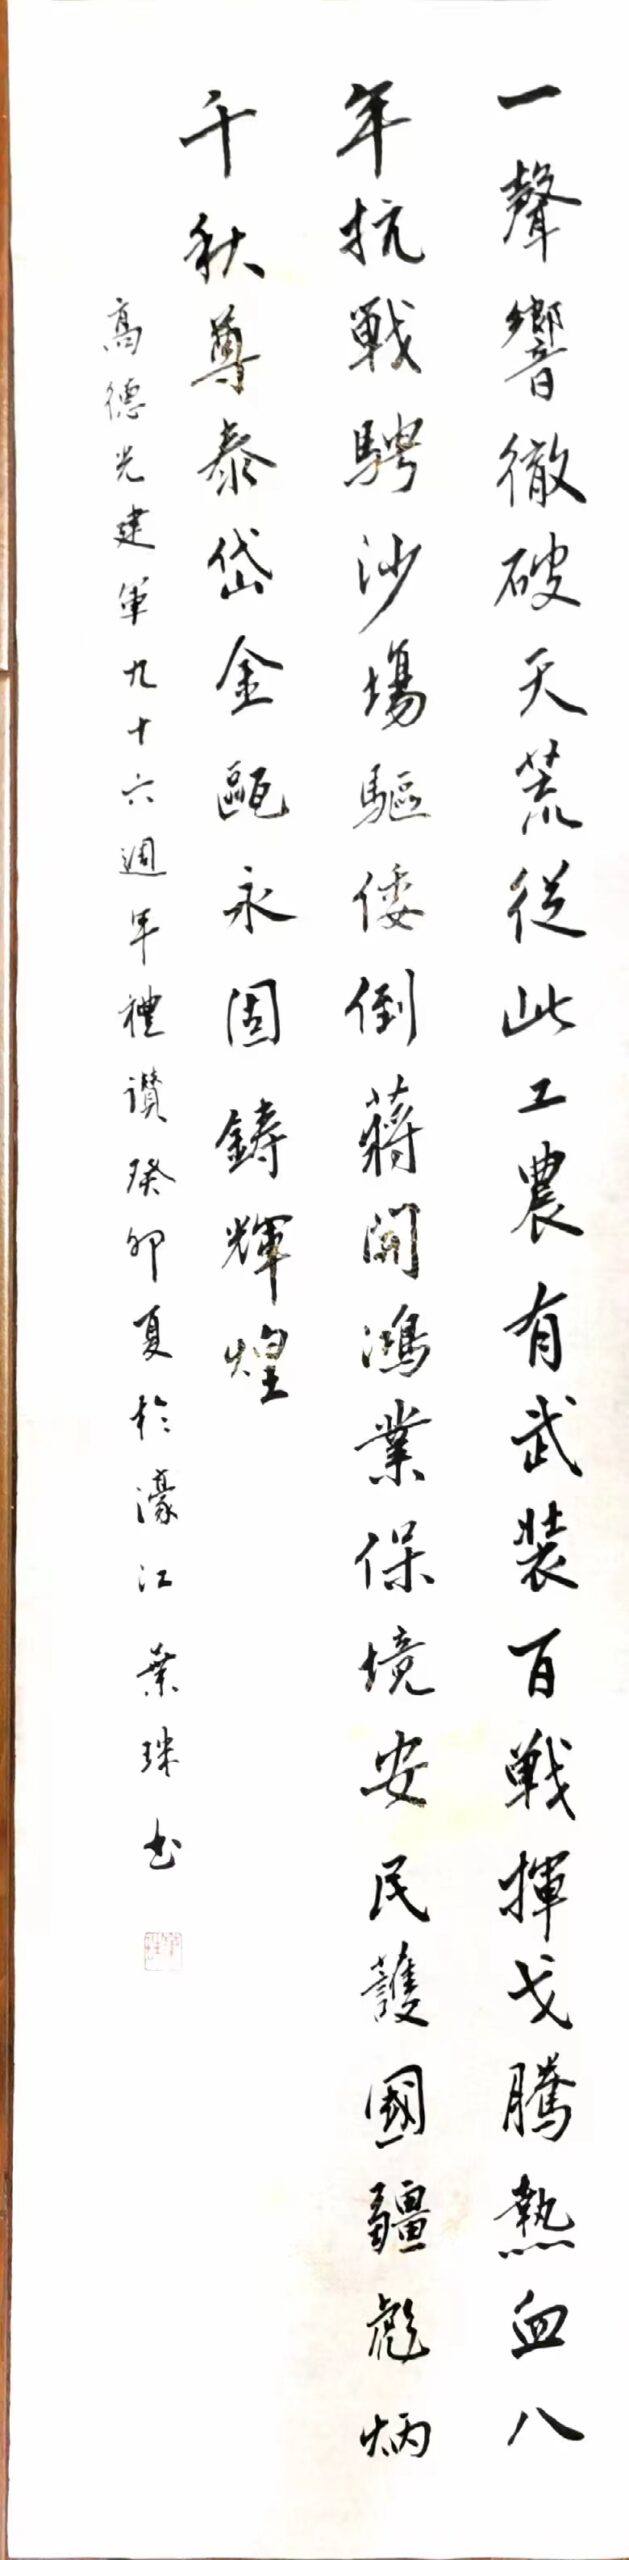 一聲響徹破天荒從此工農有武装百戰揮戈騰熱血八
年抗戰騁沙場驅倭倒蔣開鴻業保境安民護國疆彪炳
千秋尊泰岱金甌永固鑄輝煌
高德光建軍九十六週年禮讚癸卯夏於濠江葉珠书